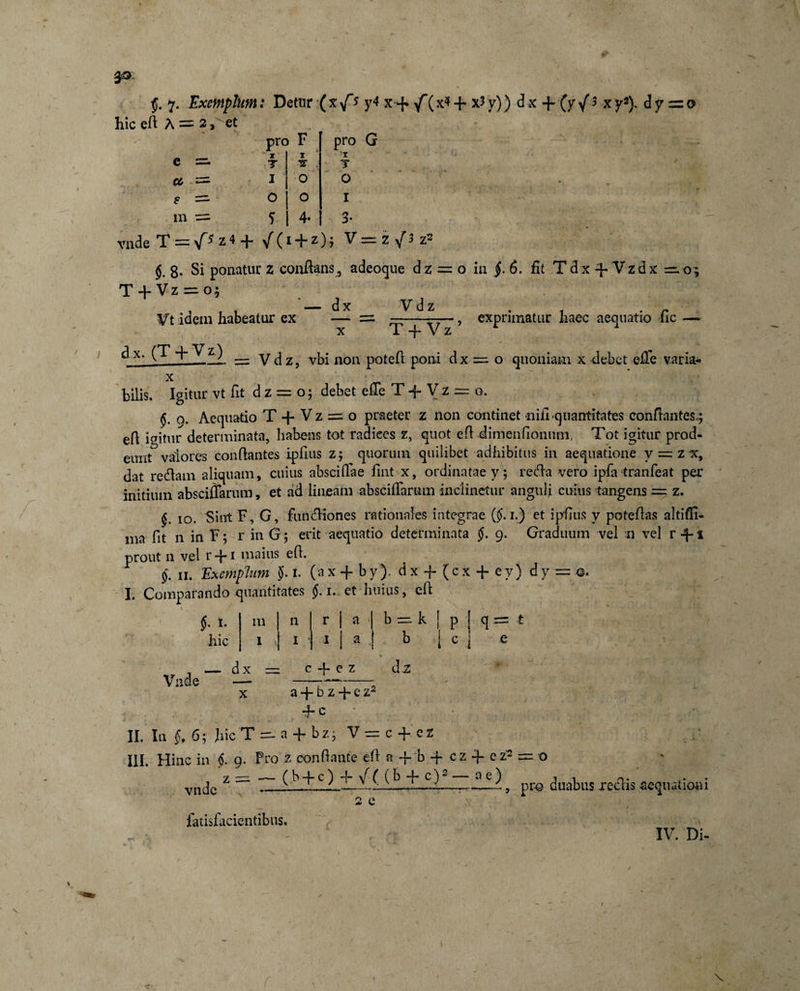 30
§. 7. Exemplum: Detur (x√⁵ y⁴ x + √(x⁴ + x³ y)) dx + (y√³ x y²). dy = o
hic est λ = 2, et
pro F | pro G
e = 1/5 | 1/2 | 1/3
α = 1 | 0 | 0
ε = 0 | 0 | 1
m = 5 | 4. | 3.
vnde T = √⁵ z⁴ + √(1+z); V = z √³ z²
§. 8. Si ponatur z constans, adeoque dz = o in §. 6. fit Tdx + Vzdx = o;
T + Vz = o;
Vt idem habeatur ex — dx/x = Vdz/(T + Vz), exprimatur haec aequatio sic —
dx. (T + Vz)/x = Vdz, vbi non potest poni dx = o quoniam x debet esse varia-
bilis. Igitur vt fit dz = o; debet esse T + Vz = o.
§. 9. Aequatio T + Vz = o praeter z non continet nisi quantitates constantes;
est igitur determinata, habens tot radices z, quot est dimensionum. Tot igitur prod-
eunt valores constantes ipsius z; quorum quilibet adhibitus in aequatione y = zx,
dat rectam aliquam, cuius abscissae sint x, ordinatae y; recta vero ipsa transeat per
initium abscissarum, et ad lineam abscissarum inclinetur anguli cuius tangens = z.
§. 10. Sint F, G, functiones rationales integrae (§. 1.) et ipsius y potestas altissi-
ma fit n in F; r in G; erit aequatio determinata §. 9. Graduum vel n vel r+1
prout n vel r+1 maius est.
§. 11. Exemplum §. 1. (ax + by). dx + (cx + ey) dy = o.
I. Comparando quantitates §. 1. et huius, est
§. 1. | m | n | r | a | b = k | p | q = t
hic | 1 | 1 | 1 | a | b | c | e
Vnde — dx/x = (c + ez)/(a + bz + ez²) dz
+ c
II. In §. 6; hic T = a + bz; V = c + ez
III. Hinc in §. 9. Pro z constante est a + b + cz + ez² = o
vnde z = — (b+c) + √((b + c)² — ae)/2e, pro duabus rectis aequationi
satisfacientibus.
IV. Di-